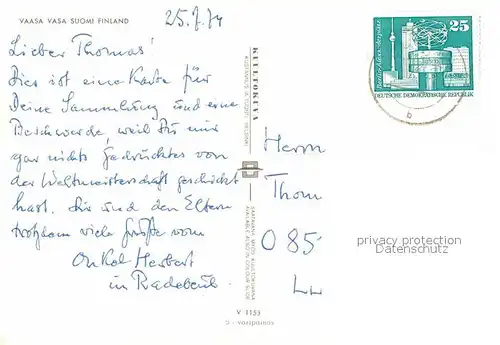 VAASA VASA SUOMI FINLAND
25.7.74
Lieber Thomas!
Dies ist eine Karte für
Deine Sammlung und eine
Beschwerde, weil Du mir
gar nichts Gedrucktes von
der Weltmeisterschaft geschickt
hast. Dir und den Eltern
trotzdem viele Grüße vom
Onkel Herbert
in Radebeul.
KULTTOKUVA
V 1153
25
DEUTSCHE DEMOKRATISCHE REPUBLIK
b
Herrn
Thom
085
privacy protection
Datenschutz